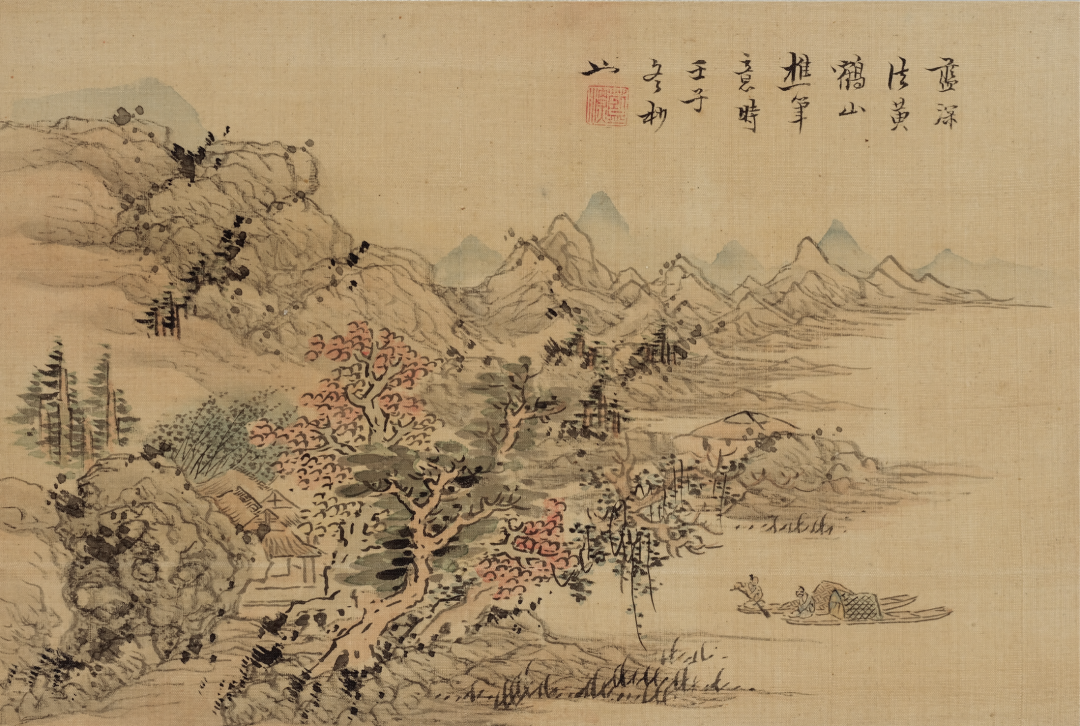 藍深
法黄
鶴山
樵筆
意時
壬子
冬杪
藍深